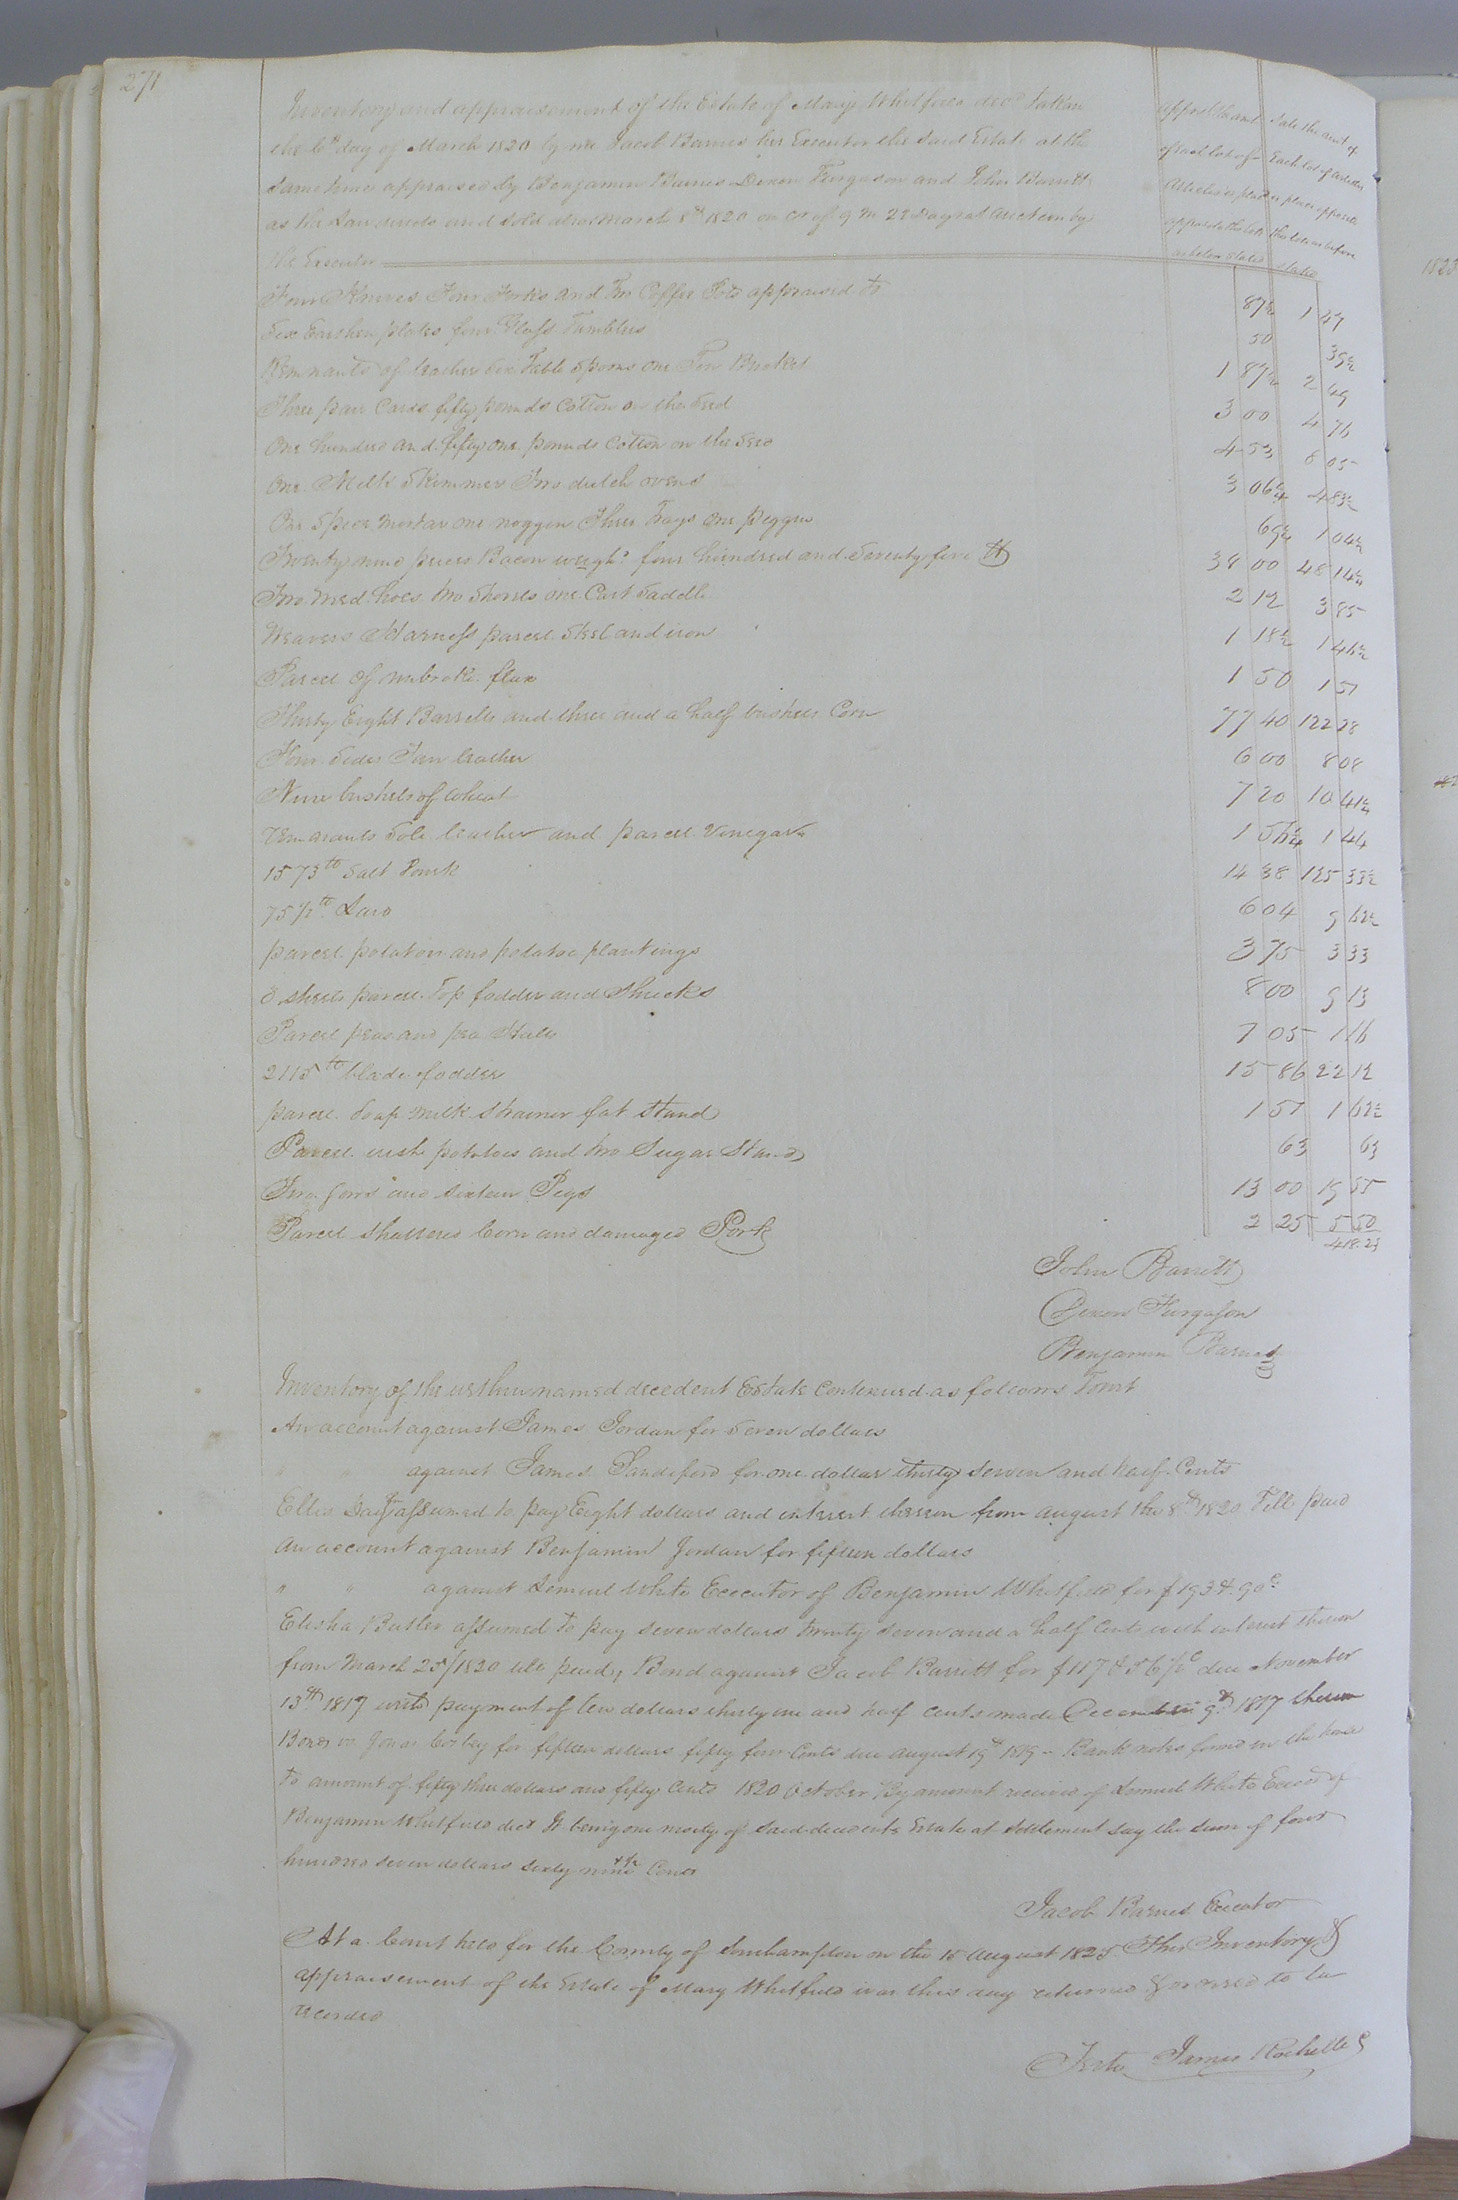 271
Inventory and appraisement of the Estate of Mary Whitfield decd taken
the 6th day of March 1820 by me Jacob Barnes her Executor the said Estate at the
same time appraised by Benjamin Barnes Dixon Furgason and John Barrett
as the Law directs and sold also March 8th 1820 on Cr of 9 M 22 Days at Auction by
the Executor
appost the amt of each lot of Articles as placed opposite the lots as below Stated
Sale the amt of Each lot of articles place opposite the lots as before stated
Four Knives Four Forks and Two Coffee Pots appraised to 87½ 1 47
Six Earthen plates four Glass Tumblers 50 35½
Remnants of leather Six Table Spoons one Tin Bucket 1 87½ 2 49
Three pair Cards fifty pounds Cotton on the Seed 3 00 4 76
One hundred and fifty one pounds Cotton on the Seed 4 53 6 05
One Milk Skimmer Two dutch ovens 3 06¼ 4 83½
One Spice Mortar one noggin Three Trays One Piggin 69¼ 1 04½
Twenty nine pieces Bacon weighg four hundred and Seventy five lb 38 00 48 14¼
Two Weed hoes two Shovels one Cart Saddle 2 12 3 85
Weavers Harness parcel Steel and iron 1 18½ 1 46½
Parcel of unbroke flax 1 50 1 51
Thirty Eight Barrells and three and a half bushels Corn 77 40 122 28
Four Sides Tan leather 6 00 8 08
Nine bushels of wheat 7 20 10 41¼
Remnants Sole leather and parcel Vinegar 1 56¼ 1 44
1573 lb Salt Pork 14 38 125 33½
75½ lb Lard 6 04 9 62½
parcel potatoes and potatoe plantings 3 75 3 33
8 sheets parcel Top fodder and Shucks 8 00 9 13
Parcel peas and pea Hulls 7 05 1 16
2115 lb blade fodder 15 86 22 12
parcel Soap milk strainer fat Stand 1 51 1 62½
Parcel irish potatoes and two Sugar Stands 63 63
Two Sows and sixteen Pigs 13 00 19 55
Parcel shattered Corn and damaged Pork 2 25 5 50
418.23
John Barrett
Dixon Furgason
Benjamin Barnes
Inventory of the within named decedent Estate Continued as follows Towit
An account against James Jordan for Seven dollars
" " against James Sandiford for one dollar thirty seven and half Cents
Ellis assumed to pay Eight dollars and interest thereon from august the 8th 1820 Till paid
An account against Benjamin Jordan for fifteen dollars
" " against Lemuel White Executor of Benjamin Whitfield for $193 & 90c
Elisha Butler assumed to pay seven dollars twenty seven and a half Cents with interest thereon
from March 25/1820 till paid, Bond against Jacob Barrett for $117 & 56½c due November
13th 1817 with payment of ten dollars thirty one and half cents made December 9th 1817 thereon
Bond vs Jonas for fifteen dollars fifty four Cents due august 19th 1819 - Bank notes found in the house
to amount of fifty three dollars and fifty Cents 1820 October By amount received of Lemuel White Execr of
Benjamin Whitfield decd It being one moity of said decedents Estate at Settlement say the sum of four
hundred seven dollars sixty nine & ½ Cents
Jacob Barnes Executor
At a Court held for the County of Southampton on the 15 August 1825 This Inventory &
appraisement of the Estate of Mary Whitfield was this day returned & ordered to be
recorded
Teste James Rochelle C